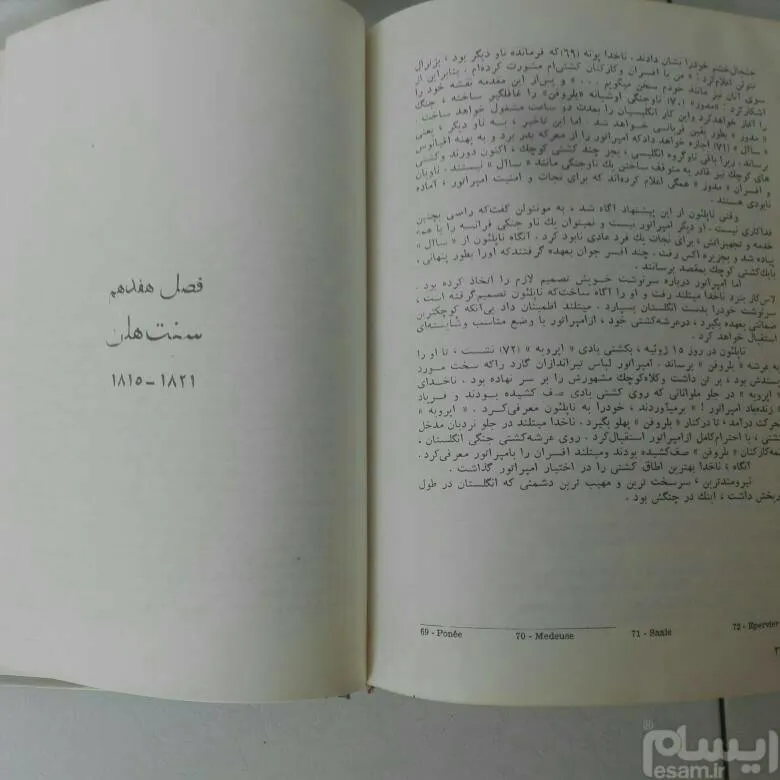 جنجال‌خشم خودرا نشان دادند . ناخدا پونه (۶۹) که فرمانده ناو دیگر بود ، بژنرال
نتوئن اعلام‌کرد : « من با افسران و کارکنان کشتی‌ام مشورت کرده‌ام . بنابراین از
سوی آنان نیز مانند خودم سخن میگویم ... » و پس‌از این مقدمه نقشه خود را
آشکارکرد : « مدوز » (۷۰) ناوجنگی اوشبانه « بلروفن » را غافلگیر ساخته ، جنگ
را آغاز خواهدکرد واین کار انگلیسیان را بمدت دو ساعت مشغول خواهد ساخت .
« مدوز » بطور یقین قربانی خواهد شد . اما این تاخیر ، به ناو دیگر ، یعنی
« ساال » (۷۱) اجازه خواهد دادکه امپراتور را از معرکه بدر برد و به پهنه اقیانوس
رساند . زیرا باقی ناوگروه انگلیسی ، بجز چند کشتی کوچک ، اکنون دورند وکشتی
های کوچک نیز قادر به متوقف ساختن یك ناوجنگی مانند « ساال » نیستند . ناوبان
و افسران « مدوز » همگی اعلام کرده‌اند که برای نجات و امنیت امپراتور ، آماده
نابودی هستند .
وقتی ناپلئون از این پیشنهاد آگاه شد ، به مونتولن گفت‌که راضی بچنین
فداکاری نیست . او دیگر امپراتور نیست و نمیتوان یك ناو جنگی فرانسه را با همه
خدمه و تجهیزاتش ، برای نجات یك فرد عادی نابود کرد . آنگاه ناپلئون از « ساال »
پیاده شد و بجزیره اکس رفت . چند افسر جوان بعهده گرفتندکه اورا بطور پنهانی ،
بایك‌کشتی کوچك بمقصد برسانند .
اما امپراتور درباره سرنوشت خویش تصمیم لازم را اتخاذ کرده بود .
لاس‌کاز بنزد ناخدا میتلند رفت و او را آگاه ساخت‌که ناپلئون تصمیم‌گرفته است ،
سرنوشت خودرا بدست انگلستان بسپارد . میتلند اطمینان داد بی‌آنکه کوچکترین
ضمانتی بعهده بگیرد ، درعرشه‌کشتی خود ، ازامپراتور با وضع مناسب وشایسته‌ای
استقبال خواهد کرد .
ناپلئون در روز ۱۵ ژوئیه ، بکشتی بادی « اپرویه » (۷۲) نشست ، تا او را
به عرشه « بلروفن » برساند . امپراتور لباس تیراندازان گارد راکه سخت مورد
پسندش بود ، بر تن داشت وکلاه‌کوچك مشهورش را بر سر نهاده بود . ناخدای
« اپرویه » در جلو ملوانانی که روی کشتی بادی صف کشیده بودند و فریاد
« زنده‌باد امپراتور ! » برمیآوردند ، خودرا به ناپلئون معرفی‌کرد . « اپرویه »
بحرکت درآمد ، تا درکنار « بلروفن » پهلو بگیرد . ناخدا میتلند در جلو نردبان مدخل
کشتی ، با احترام‌کامل ازامپراتور استقبال‌کرد . روی عرشه‌کشتی جنگی انگلستان ،
همه‌کارکنان « بلروفن » صف‌کشیده بودند ومیتلند افسران را بامپراتور معرفی‌کرد .
آنگاه ، ناخدا بهترین اطاق کشتی را در اختیار امپراتور گذاشت .
نیرومندترین ، سرسخت ترین و مهیب ترین دشمنی که انگلستان در طول
تاریخش داشت ، اینك در چنگش بود .
69 - Ponée 70 - Meduese 71 - Saale 72 - Epervier
فصل هفدهم
سنت هلن
۱۸۲۱ - ۱۸۱۵
ایسام
esam.ir